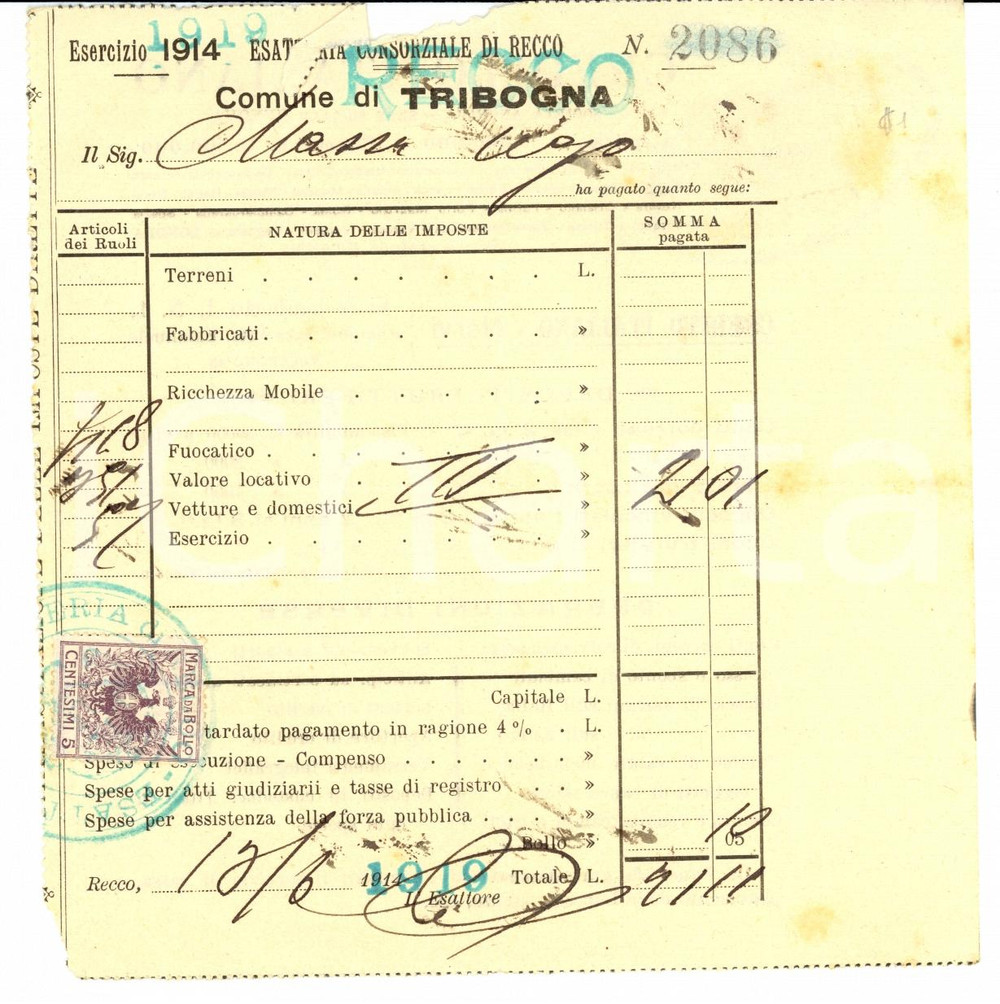 1919
Esercizio 1914 ESATTORIA CONSORZIALE DI RECCO N. 2086
RECCO
Comune di TRIBOGNA
Il Sig. Massa Ugo
ha pagato quanto segue:
Articoli dei Ruoli NATURA DELLE IMPOSTE SOMMA pagata
Terreni . . . . . . . L.
Fabbricati . . . . . . »
Ricchezza Mobile . . . . »
Fuocatico . . . . . . »
Valore locativo . . . . »
Vetture e domestici . . . »
Esercizio . . . . . . »
2 01
ERIA
MARCA DA BOLLO
CENTESIMI 5
Capitale L.
tardato pagamento in ragione 4 % . L.
Spese di esecuzione - Compenso . . . . . . . »
Spese per atti giudiziarii e tasse di registro . . »
Spese per assistenza della forza pubblica . . . . »
Bollo » 05
10
Recco, 12/6 1914 1919 Totale L. 2 11
Il Esattore
DELLE IMPOSTE DIRETTE
Charta